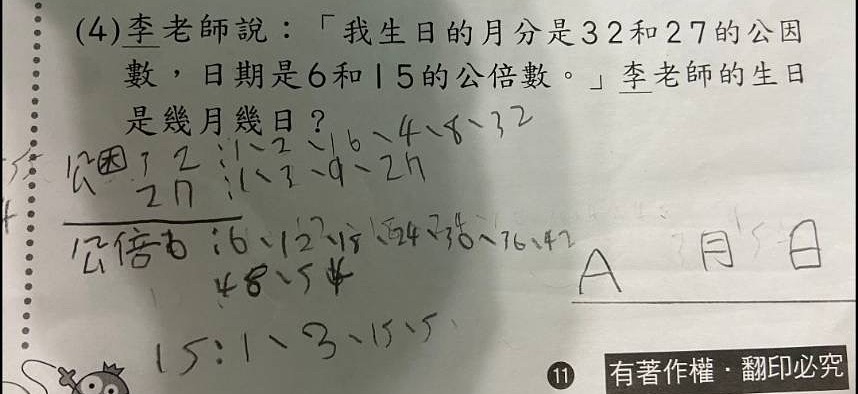 (4)李老師說：「我生日的月分是32和27的公因
數，日期是6和15的公倍數。」李老師的生日
是幾月幾日？
公因32：1、2、16、4、8、32
27：1、3、9、27
公倍6：6、12、18、24、30、36、42
48、54
A 月 日
15：1、3、15、5、
11 有著作權·翻印必究